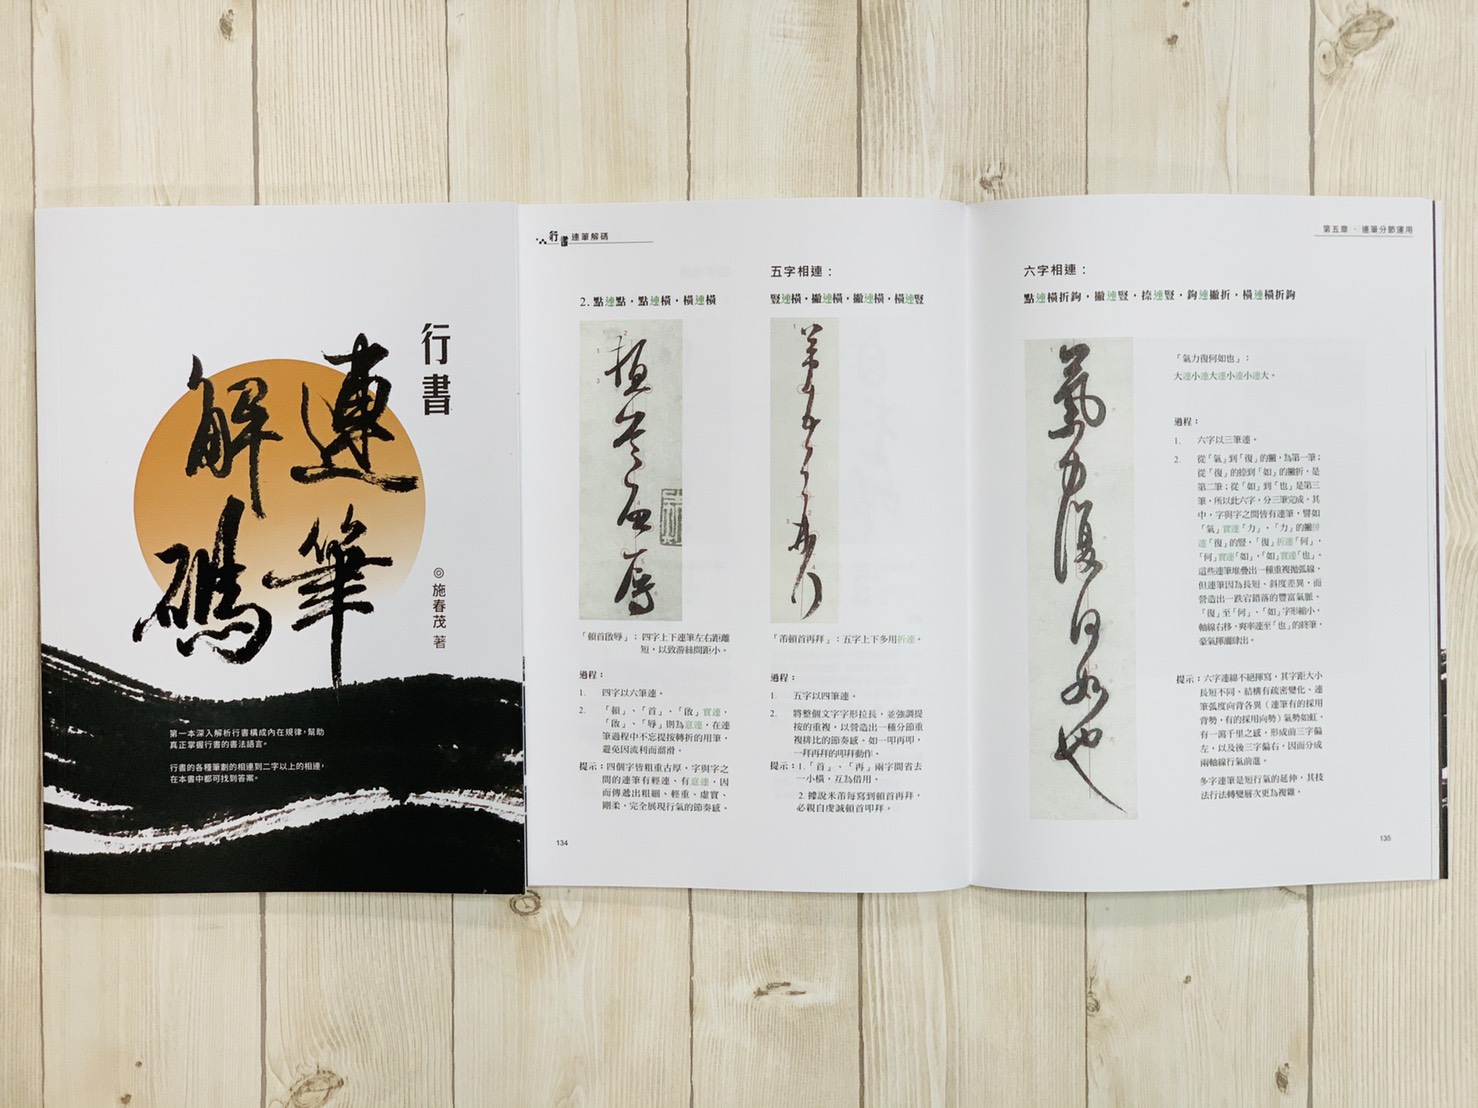 行書
連筆
解碼
◎施春茂 著
第一本深入解析行書構成內在規律，幫助
真正掌握行書的書法語言。
行書的各種筆劃的相連到二字以上的相連，
在本書中都可找到答案。
行書 連筆解碼
2. 點連點，點連橫，橫連橫
「頓首啟辱」：四字上下連筆左右距離
短，以致游絲間距小。
過程：
1. 四字以六筆連。
2. 「頓」、「首」、「啟」實連，
「啟」、「辱」則為意連，在連
筆過程中不忘提按轉折的用筆，
避免因流利而溜滑。
提示：四個字皆粗重古厚，字與字之
間的連筆有輕連、有意連，因
而傳遞出粗細、輕重、虛實、
剛柔，完全展現行氣的節奏感。
134
五字相連：
豎連橫，撇連橫，撇連橫，橫連豎
「芾頓首再拜」：五字上下多用折連。
過程：
1. 五字以四筆連。
2. 將整個文字字形拉長，並強調提
按的重複，以營造出一種分節重
複排比的節奏感，如一叩再叩，
一拜再拜的叩拜動作。
提示：1.「首」、「再」兩字間省去
一小橫，互為借用。
2. 據說米芾每寫到頓首再拜，
必親自虔誠頓首叩拜。
第五章 · 連筆分節運用
六字相連：
點連橫折鉤，撇連豎，捺連豎，鉤連撇折，橫連橫折鉤
氣力復何如也
「氣力復何如也」：
大連小連大連小連小連大。
過程：
1. 六字以三筆連。
2. 從「氣」到「復」的撇，為第一筆；
從「復」的捺到「如」的撇折，是
第二筆；從「如」到「也」是第三
筆，所以此六字，分三筆完成，其
中，字與字之間皆有連筆，譬如
「氣」實連「力」，「力」的撇併
連「復」的豎，「復」折連「何」，
「何」實連「如」，「如」實連「也」。
這些連筆堆疊出一種重複拋弧線，
但連筆因為長短、斜度差異，而
營造出一跌宕錯落的豐富氣脈。
「復」至「何」、「如」字形縮小，
軸線右移，爽率連至「也」的終筆，
豪氣揮灑肆出。
提示：六字連綿不絕揮寫，其字距大小
長短不同，結構有疏密變化，連
筆弧度向背各異（連筆有的採用
背勢，有的採用向勢）氣勢如虹，
有一瀉千里之感，形成前三字偏
左，以及後三字偏右，因而分成
兩軸線行氣前進。
多字連筆是短行氣的延伸，其技
法行法轉變層次更為複雜。
135